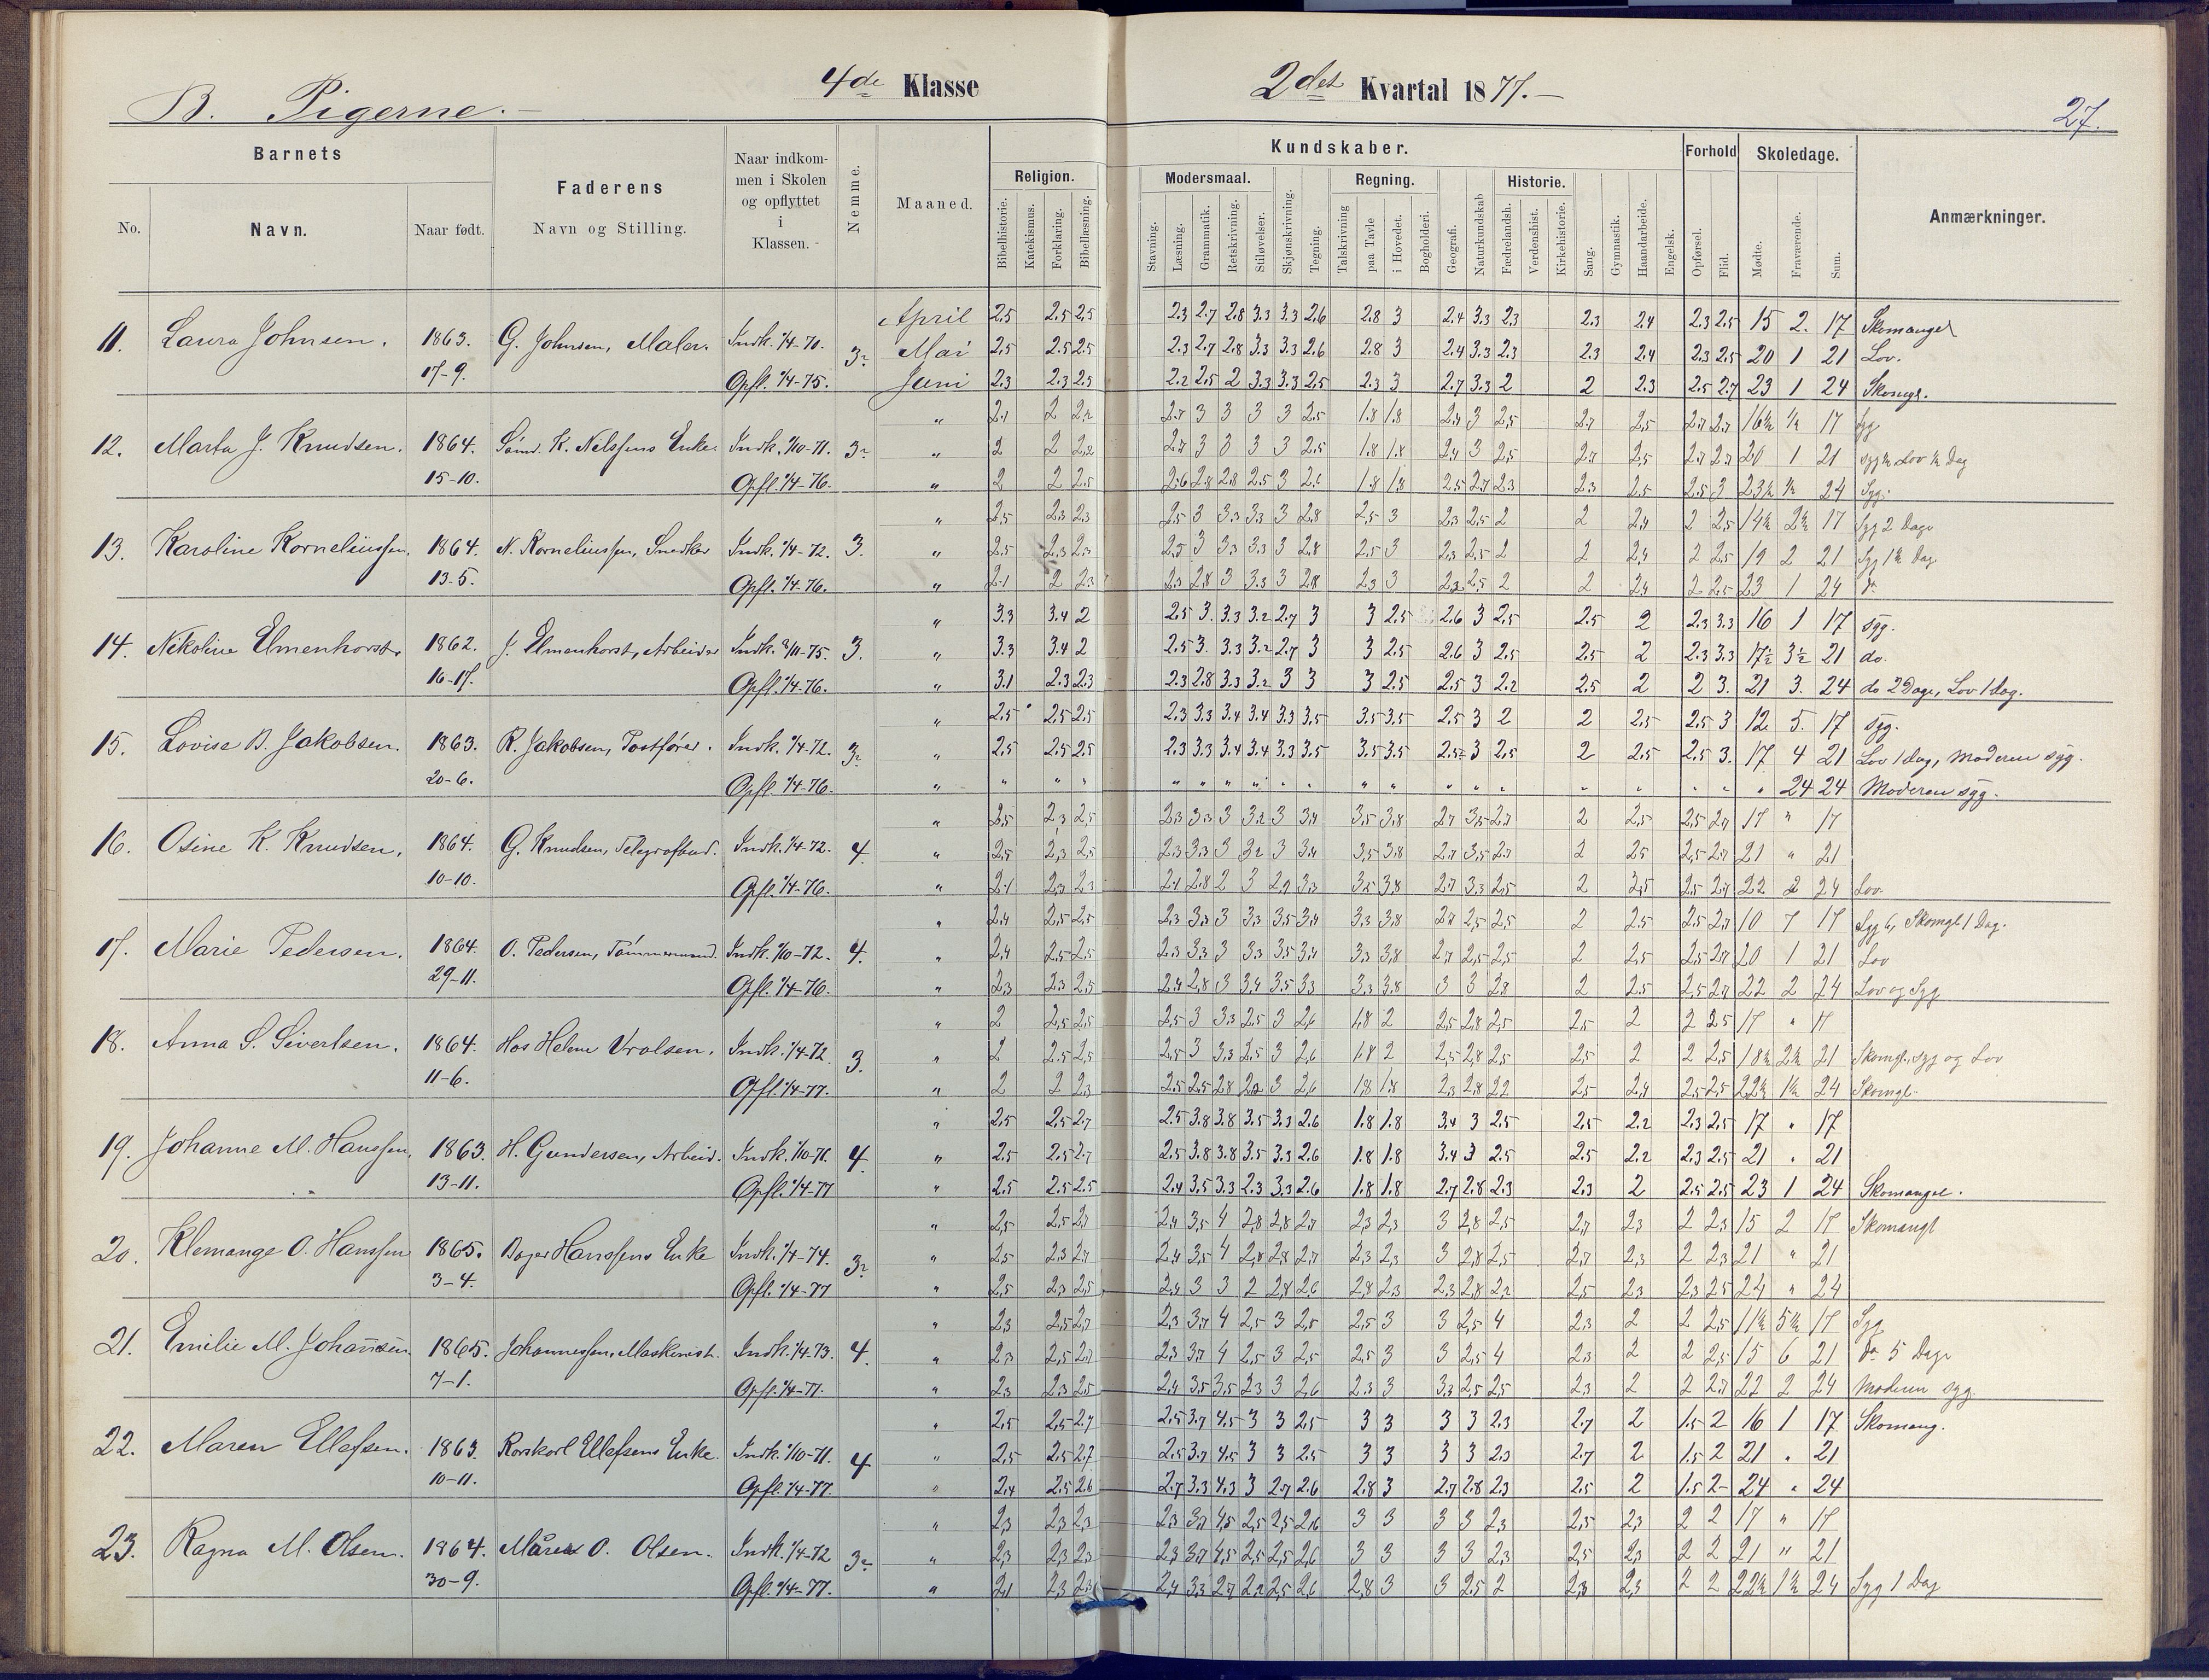 4de Klasse 2det Kvartal 1877.
B. Pigerne. 27.
Barnets
Faderens
Naar indkommen i Skolen og opflyttet i Klassen.
Nemme.
Maaned.
Kundskaber.
Forhold
Skoledage.
Anmærkninger.
Religion. Modersmaal. Regning. Historie.
No. Navn. Naar født. Navn og Stilling.
Bibelhistorie. Katekismus. Forklaring. Bibellæsning. Stavning. Læsning. Grammatik. Retskrivning. Stiløvelser. Skjønskrivning. Tegning. Talskrivning paa Tavle i Hovedet. Bogholderi. Geografi. Naturkundskab Fædrelandsh. Verdenshist. Kirkehistorie. Sang. Gymnastik. Haandarbeide. Engelsk. Opførsel. Flid. Mødte. Fraværende. Sum.
April 2.5 2.5 2.5 2.3 2.7 2.8 3.3 3.3 2.6 2.8 3 2.4 3.3 2.3 2.3 2.4 2.3 2.5 15 2. 17 Skomangel
11. Laura Johnsen. 1863. G. Johnsen, Maler. Indk. 1/4-70. 3 Mai 2.5 2.5 2.5 2.3 2.7 2.8 3.3 3.3 2.6 2.8 3 2.4 3.3 2.3 2.3 2.4 2.3 2.5 20 1 21 Lov.
17-9. Opfl. 1/4-75. Juni 2.3 2.3 2.5 2.2 2.5 2 3.3 3.3 2.5 2.3 3 2.7 3.3 2 2 2.3 2.5 2.7 23 1 24 Skomgl.
" 2.1 2 2.2 2.7 3 3 3 3 2.5 1.8 1.8 2.4 3 2.5 2.7 2.5 2.7 2.7 16½ ½ 17 Syg
12. Marta J. Knudsen. 1864. K. Nilssens Enke. Indk. 1/10-71. 3 " 2 2 2.2 2.7 3 3 3 3 2.5 1.8 1.8 2.4 3 2.5 2.7 2.5 2.7 2.7 20 1 21 syg ½ Lov ½ Dag
15-10. Opfl. 1/4-76. " 2 2 2.5 2.6 2.8 2.8 2.5 3 2.6 1.8 1.8 2.5 2.7 2.3 2.3 2.5 2.5 3 23½ ½ 24 Syg.
" 2.5 2.3 2.3 2.5 3 3.3 3.3 3 2.8 2.5 3 2.3 2.5 2 2 2.4 2 2.5 14½ 2½ 17 Syg 2 Dage
13. Karoline Korneliussen. 1864. N. Korneliussen, Snedker Indk. 1/4-72. 3. " 2.5 2.3 2.3 2.5 3 3.3 3.3 3 2.8 2.5 3 2.3 2.5 2 2 2.4 2 2.5 19 2 21 Syg 1½ Dag
13-5. Opfl. 1/4-76. " 2.1 2 2.3 2.3 2.8 3 3.3 3 2.8 2.3 3 2.3 2.5 2 2 2.4 2 2.5 23 1 24 do
" 3.3 3.4 2 2.5 3. 3.3 3.2 2.7 3 3 2.5 2.6 3 2.5 2.5 2 2.3 3.3 16 1 17 syg.
14. Nikoline Elmenhorst. 1862. J. Elmenhorst, Arbeider 3. " 3.3 3.4 2 2.5 3. 3.3 3.2 2.7 3 3 2.5 2.6 3 2.5 2.5 2 2.3 3.3 17½ 3½ 21 do.
Opfl. 1/4-76. " 3.1 2.3 2.3 2.3 2.8 3.3 3.2 3 3 3 2.5 2.5 3 2.2 2.5 2 2 3. 21 3. 24 do 2 Dage, Lov 1 Dag.
" 2.5 2.5 2.5 2.3 3.3 3.4 3.4 3.3 3.5 3.5 3.5 2.5 3 2 2 2.5 2.5 3 12 5. 17 syg.
15. Lovise B. Jakobsen. 1863. R. Jakobsen, Postfører. Indk. 1/4-72. 3 " 2.5 2.5 2.5 2.3 3.3 3.4 3.4 3.3 3.5 3.5 3.5 2.5 3 2.5 2 2.5 2.5 3. 17 4 21 Lov 1 dag, Moderen syg.
20-6. Opfl. 1/4-76. " " " " " " " " " " " " " " " " " " " " 24 24 Moderen syg.
" 2.5 2.3 2.5 2.3 3.3 3 3.2 3 3.4 3.5 3.8 2.7 3.5 2.7 2 2.5 2.5 2.7 17 " 17
16. Osine K. Knudsen. 1864. G. Knudsen, Telegrafbud. Indk. 1/4-72. 4 " 2.5 2.3 2.5 2.3 3.3 3 3.2 3 3.4 3.5 3.8 2.7 3.5 2.7 2 2.5 2.5 2.7 21 " 21
10-10. Opfl. 1/4-76. " 2.1 2.3 2.3 2.1 2.8 2 3 2.9 3.3 3.5 3.8 2.7 3.3 2.5 2 2.5 2.5 2.7 22 2 24 Lov
" 2.4 2.5 2.5 2.3 3.3 3 3.3 3.5 3.4 3.3 3.8 2.7 2.5 2.5 2 2.5 2.5 2.7 10 7 17 Syg 6, Skomgl 1 Dag.
17. Marie Pedersen. 1864. O. Pedersen, Tømmermand. Indk. 1/10-72. 4. " 2.4 2.5 2.5 2.3 3.3 3 3.3 3.5 3.4 3.3 3.8 2.7 2.5 2.5 2 2.5 2.5 2.7 20 1 21 Lov
29-11. Opfl. 1/4-76. " 2.3 2.3 2.5 2.4 2.8 3 3.4 3.5 3.3 3.3 3.8 3 3 2.8 2 2.5 2.5 2.7 22 2 24 Lov og Syg
" 2 2.5 2.5 2.5 3 3.3 2.5 3 2.6 1.8 2 2.5 2.8 2.5 2.5 2 2 2.5 17 " 17
18. Anna S. Sivertsen. 1864. Hos Helene Vrolsen. Indk. 1/4-72 3. " 2 2.5 2.5 2.5 3 3.3 2.5 3 2.6 1.8 2 2.5 2.8 2.5 2.5 2 2 2.5 18½ 2½ 21 Skomgl., syg og Lov
11-6. Opfl. 1/4-77. " 2 2 2.3 2.5 2.5 2.8 2.2 3 2.6 1.8 1.8 2.3 2.8 2.2 2.5 2.4 2.5 2.5 22½ 1½ 24 Skomgl.
" 2.5 2.5 2.7 2.5 3.8 3.8 3.5 3.3 2.6 1.8 1.8 3.4 3 2.5 2.5 2.2 2.3 2.5 17 " 17
19. Johanne M. Hanssen. 1863. H. Gundersen, Arbeid. Indk. 1/10-71. 4. " 2.5 2.5 2.7 2.5 3.8 3.8 3.5 3.3 2.6 1.8 1.8 3.4 3 2.5 2.5 2.2 2.3 2.5 21 " 21
13-11. Opfl. 1/4-77 " 2.5 2.5 2.5 2.4 3.5 3.3 2.3 3.3 2.6 1.8 1.8 2.7 2.8 2.3 2.3 2 2.5 2.5 23 1 24 Skomangel.
" 2.5 2.5 2.7 2.4 3.5 4 2.8 2.8 2.7 2.3 2.3 3 2.8 2.5 2.7 2.3 2 2.3 15 2 17 Skomangl
20. Klemange O. Hanssen 1865. Hanssens Enke Indk. 1/4-74. 3 " 2.5 2.3 2.7 2.4 3.5 4 2.8 2.8 2.7 2.3 2.3 3 2.8 2.5 2.7 2.3 2 2.3 21 " 21
3-4. Opfl. 1/4-77 " 2.5 2.3 2.5 2.4 3 3 2 2.8 2.6 2.8 2.3 2.3 2.8 2.2 2.5 2.3 2.3 2.5 24 " 24
" 2.3 2.5 2.7 2.3 3.7 4 2.5 3 2.5 2.5 3 3 2.5 4 2.3 2 2 2.5 11½ 5½ 17 Syg
21. Emilie M. Johannesen. 1865. Johannessen, Maskinist. Indk. 1/4-73. 4. " 2.3 2.5 2.7 2.3 3.7 4 2.5 3 2.5 2.5 3 3 2.5 4 2.3 2 2 2.5 15 6 21 do 5 Dage
7-1. Opfl. 1/4-77. " 2.3 2.3 2.5 2.4 3.5 3.5 2.3 3 2.6 2.3 3 3.3 2.5 2.5 2.3 2 2 2.7 22 2 24 Moderen syg.
" 2.5 2.5 2.7 2.5 3.7 4.5 3 3 2.5 3 3 3 3 2.3 2.7 2 1.5 2 16 1 17 Skomang.
22. Maren Ellefsen. 1863. Korskarl Ellefsens Enke. Indk. 1/10-71. 4 " 2.5 2.5 2.7 2.5 3.7 4.5 3 3 2.5 3 3 3 3 2.3 2.7 2 1.5 2 21 " 21
10-11. Opfl. 1/4-77. " 2.4 2.5 2.6 2.7 3.3 4.3 3 2.7 2.6 2.8 3 2.7 2.8 2.3 2.5 2 1.5 2 24 " 24
" 2.3 2.3 2.3 2.3 3.7 4.5 2.5 2.5 2.6 3 3 3 3 2.3 2.5 2.3 2 2 17 " 17
23. Ragna M. Olsen. 1864. O. Olsen. Indk. 1/4-72 3 " 2.3 2.3 2.3 2.3 3.7 4.5 2.5 2.5 2.6 3 3 3 3 2.3 2.5 2.3 2 2 21 " 21
30-9. Opfl. 1/4-77. " 2.1 2.3 2.3 2.4 3.3 2.7 2.2 2.5 2.6 2.8 3 3 2.5 2 2.3 2.3 2 2 22½ 1½ 24 Syg 1 Dag